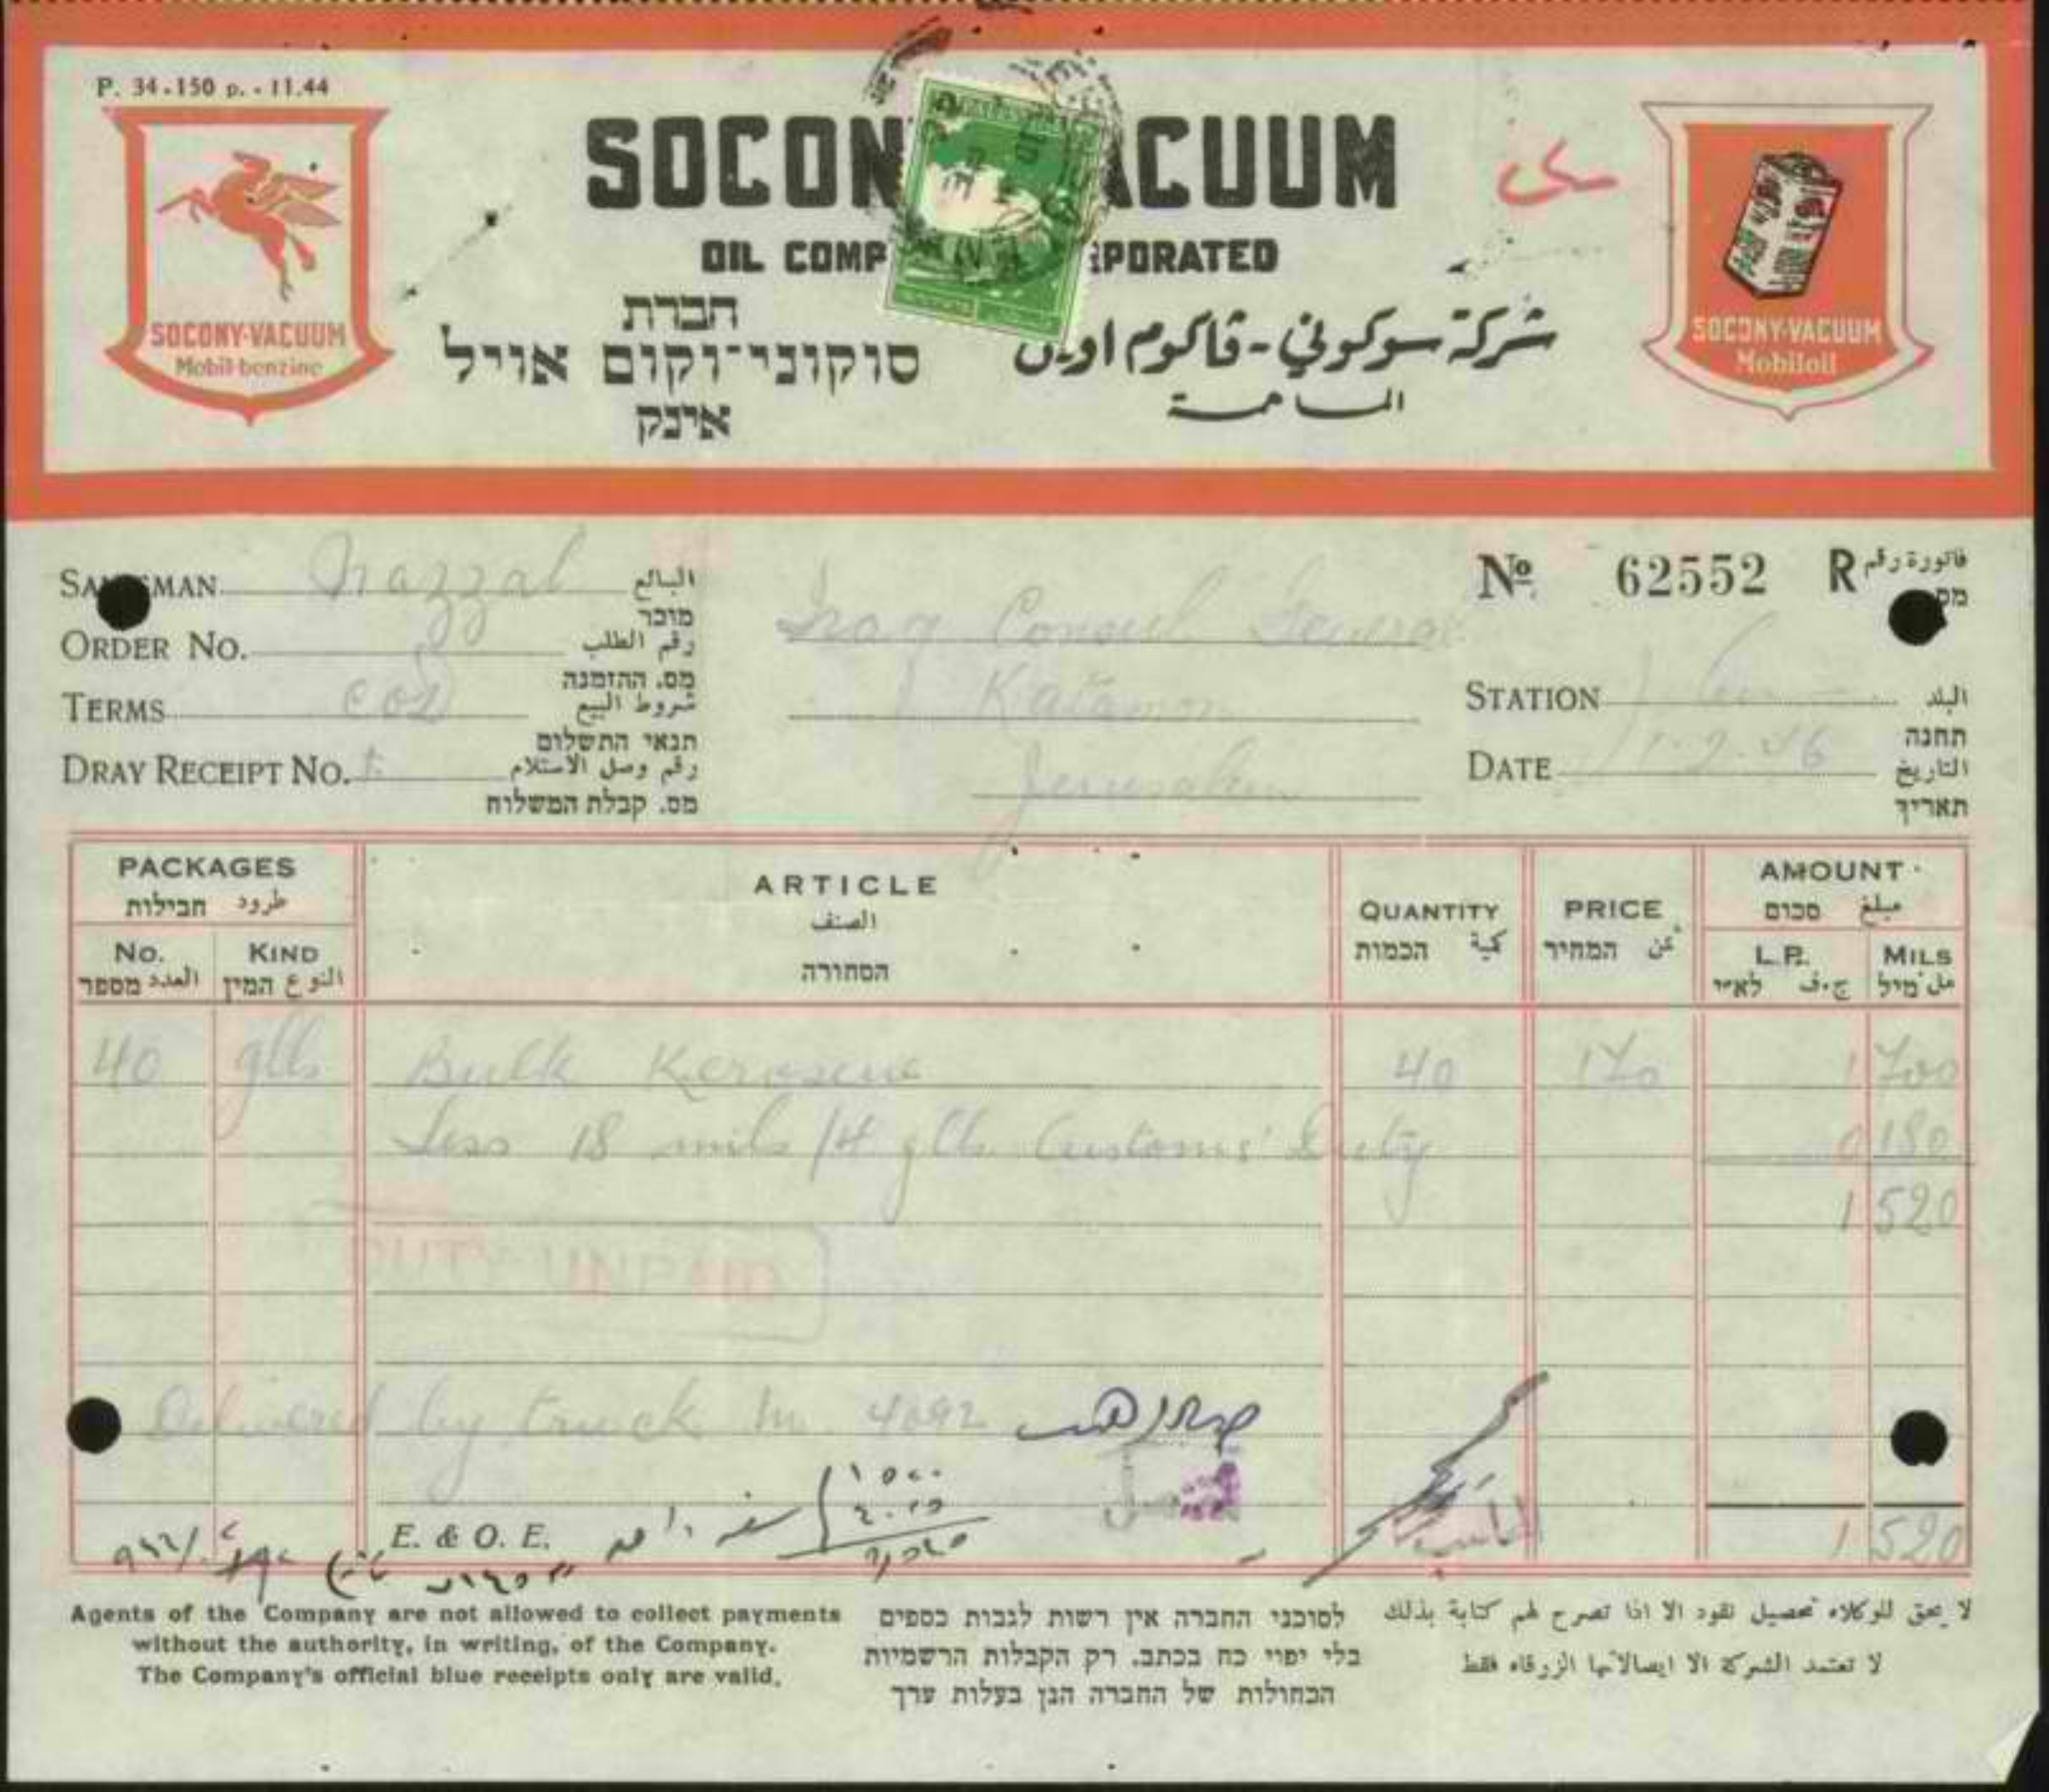 P. 34.150 p. - 11.44
SOCONY-VACUUM
Mobil-benzine
SOCON ACUUM
OIL COMP RPORATED
חברת
סוקוני־וקום אויל
אינק
شركة سوكوني - ڤاكوم اويل
المساهمة
SOCONY-VACUUM
Mobiloil
SALESMAN Nazzal البائع
מוכר
ORDER No. رقم الطلب
מס. ההזמנה
TERMS COD شروط البيع
תנאי התשלום
DRAY RECEIPT No. رقم وصل الاستلام
מס. קבלת המשלוח
Iraq Consul General
Katamon
Jerusalem
No 62552 R فاتورة رقم
מס
STATION البلد
תחנה
DATE 1.2.46 التاريخ
תאריך
PACKAGES
طرود חבילות
No. KIND
العدد מספר النوع המין
ARTICLE
الصنف
הסחורה
QUANTITY
كمية הכמות
PRICE
ثمن המחיר
AMOUNT
مبلغ סכום
L.P. MILS
ج.ف לא״י مل מיל
40 glls Bulk Kerosene 40 170 1 700
Less 18 mils /4 glls. Customs' Duty 0 180
1 520
DUTY UNPAID
Delivered by truck No. 4092
المحاسب
E. & O. E. 1 520
Agents of the Company are not allowed to collect payments
without the authority, in writing, of the Company.
The Company's official blue receipts only are valid.
לסוכני החברה אין רשות לגבות כספים
בלי יפוי כח בכתב. רק הקבלות הרשמיות
הכחולות של החברה הנן בעלות ערך
لا يحق للوكلاء تحصيل نقود الا اذا تصرح لهم كتابة بذلك
لا تعتمد الشركة الا ايصالاتها الزرقاء فقط